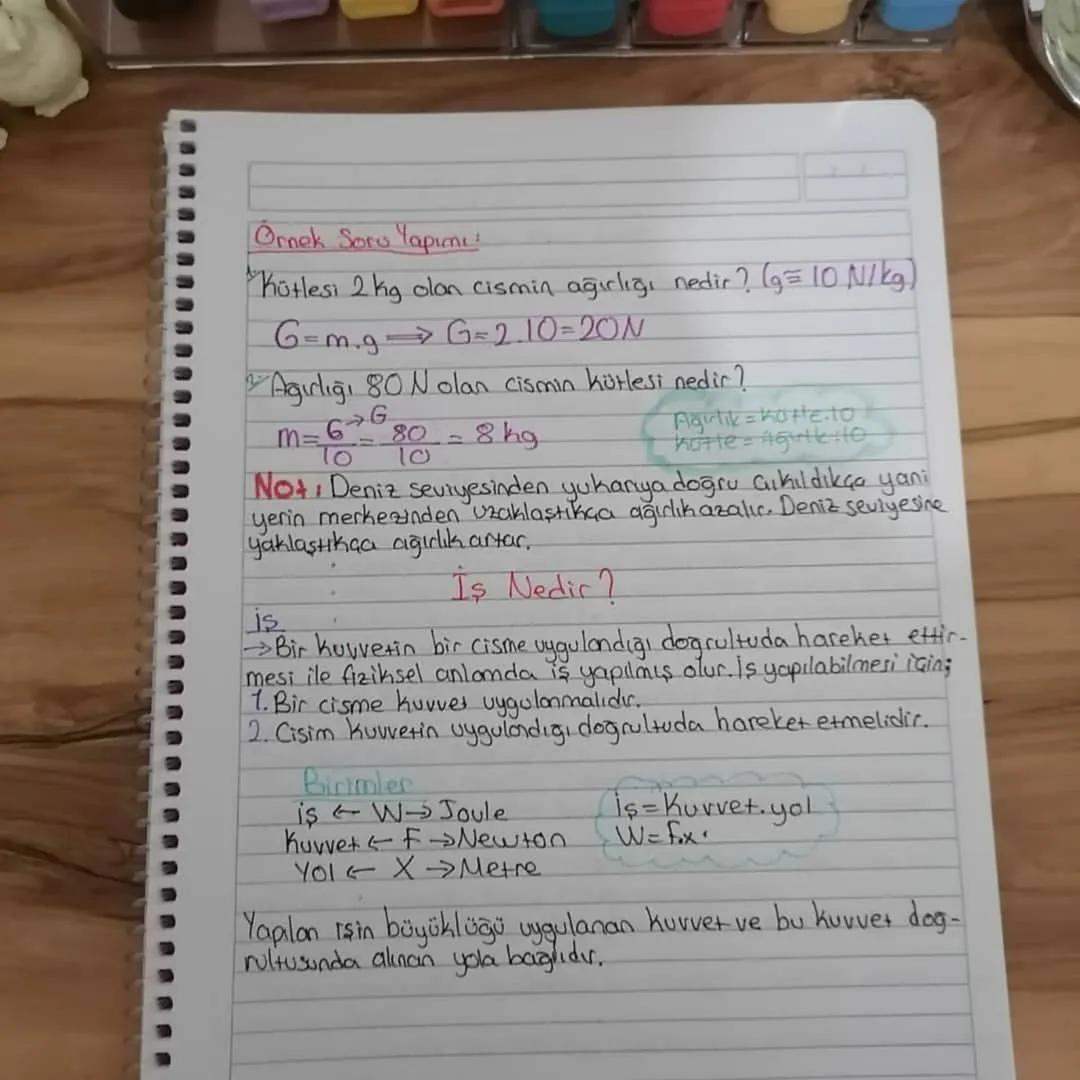 Örnek Soru Yapımı:
1- Kütlesi 2 kg olan cismin ağırlığı nedir? (g= 10 N/kg)
G=m.g ⟹ G=2.10=20N
2- Ağırlığı 80 N olan cismin kütlesi nedir?
m=G→G/10 = 80/10 = 8 kg
Ağırlık = Kütle.10
Kütle = Ağırlık:10
Not: Deniz seviyesinden yukarıya doğru çıkıldıkça yani
yerin merkezinden uzaklaştıkça ağırlık azalır. Deniz seviyesine
yaklaştıkça ağırlık artar.
İş Nedir?
iş
→Bir kuvvetin bir cisme uygulandığı doğrultuda hareket ettir-
mesi ile fiziksel anlamda iş yapılmış olur. İş yapılabilmesi için;
1. Bir cisme kuvvet uygulanmalıdır.
2. Cisim kuvvetin uygulandığı doğrultuda hareket etmelidir.
Birimler
iş ← W → Joule
Kuvvet ← F → Newton
Yol ← X → Metre
İş=Kuvvet.yol
W=F.x
Yapılan işin büyüklüğü uygulanan kuvvet ve bu kuvvet doğ-
rultusunda alınan yola bağlıdır.